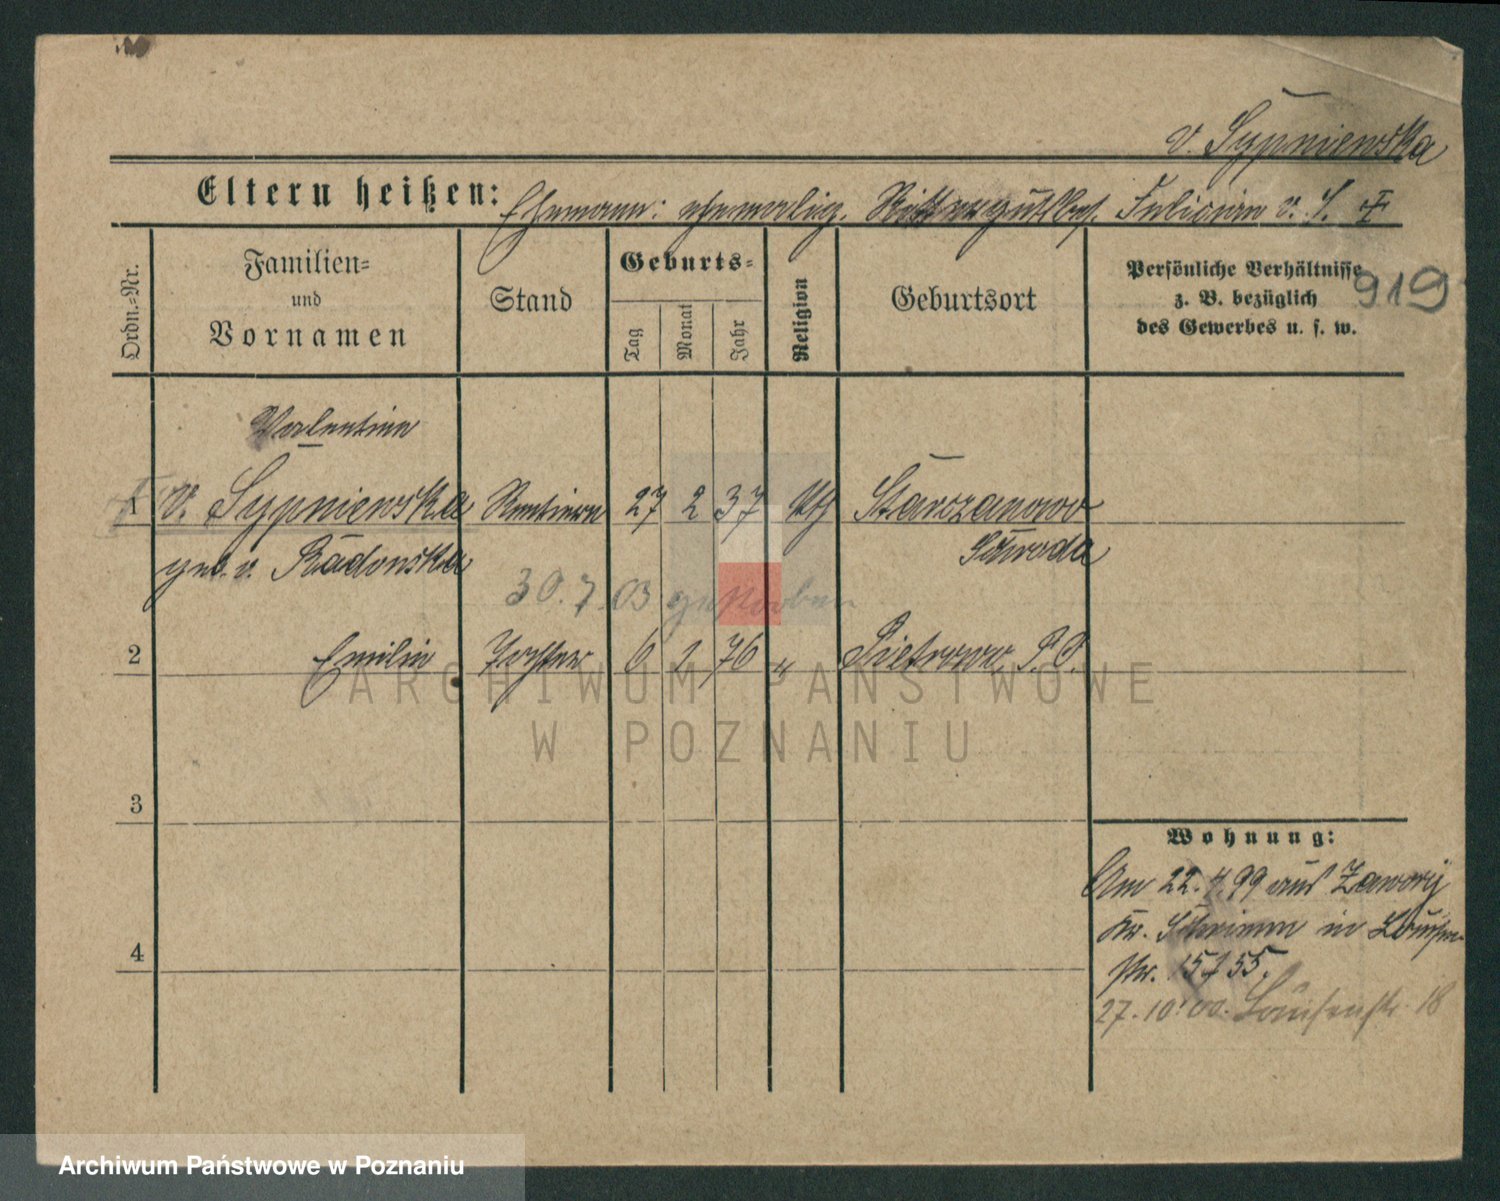 v. Sypniewska
Eltern heißen: Ehemann: ehemalig. Rittergutsbes. Felician v. S. ✝
Ordn.-Nr.
Familien-
und
Vornamen
Stand
Geburts-
Tag
Monat
Jahr
Religion
Geburtsort
Persönliche Verhältnisse
z. B. bezüglich
des Gewerbes u. s. w.
919
Valentine
1 v. Sypniewska Rentiere 27 2 37 kth Starczanowo
geb. v. Radonska Schroda
30.7.03 gestorben
2 Emilie Tochter 6 1 76 " Pietrowo, P. P.
3
4
Wohnung:
Am 22.4.99 aus Zawory
Kr. Schrimm in Louisen-
str. 15
27.10.00. Louisenstr. 18
ARCHIWUM PAŃSTWOWE
W POZNANIU
Archiwum Państwowe w Poznaniu